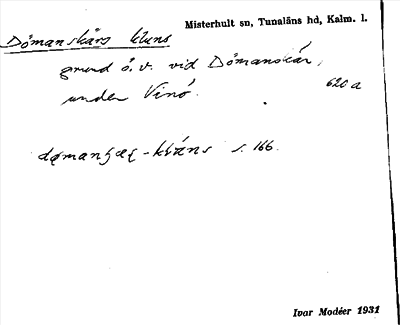 Misterhult sn, Tunaläns hd, Kalm. l.
Dömanskärs kluns
grund ö. v. vid Dömanskär,
under Vinö.
620 a
s. 166.
Ivar Modéer 1931